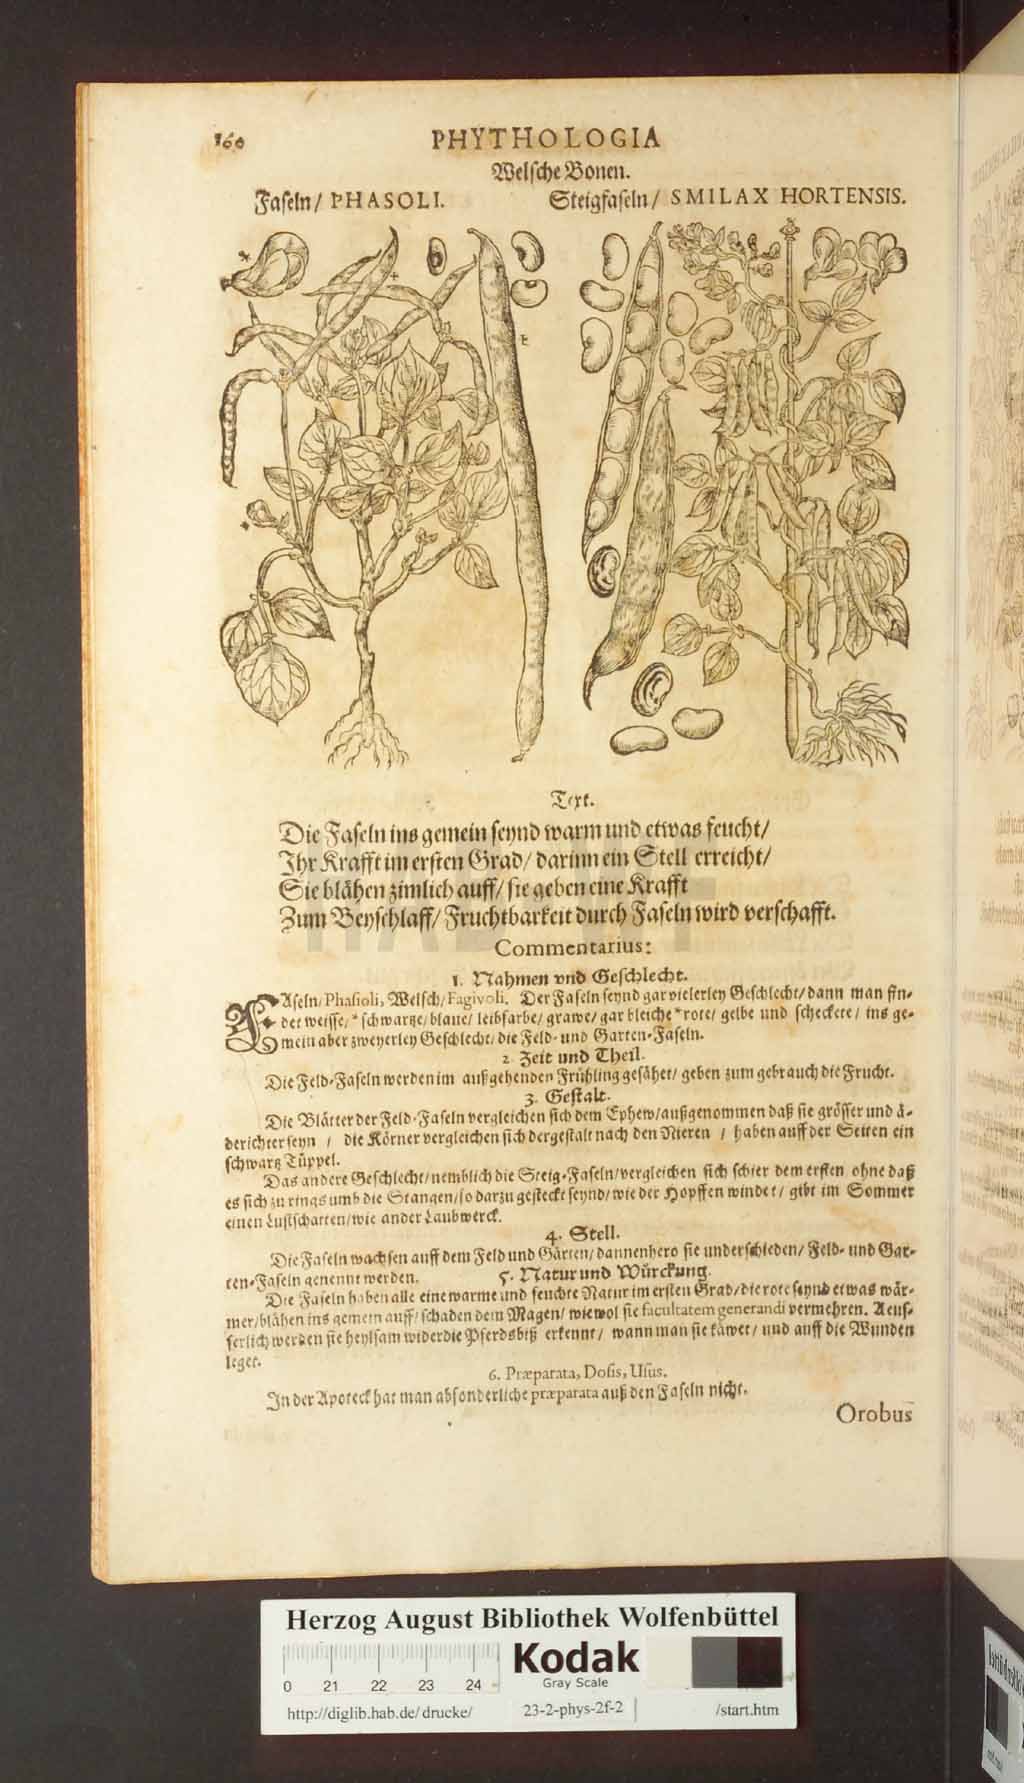 160
PHYTHOLOGIA
Welsche Bonen.
Faseln/ PHASOLI.
Steigfaseln/ SMILAX HORTENSIS.
Text.
Die Faseln ins gemein seynd warm und etwas feucht/
Ihr Krafft im ersten Grad/ darinn ein Stell erreicht/
Sie blähen zimlich auff/ sie geben eine Krafft
Zum Beyschlaff/ Fruchtbarkeit durch Faseln wird verschafft.
Commentarius:
1. Nahmen vnd Geschlecht.
FAseln/ Phasioli, Welsch/ Fagivoli. Der Faseln seynd gar vielerley Geschlecht/ dann man fin-
det weisse/ * schwartze/ blaue/ leibfarbe/ grawe/ gar bleiche * rote/ gelbe und scheckete/ ins ge-
mein aber zweyerley Geschlecht/ die Feld- und Garten-Faseln.
2. Zeit und Theil.
Die Feld-Faseln werden im außgehenden Frühling gesähet/ geben zum gebrauch die Frucht.
3. Gestalt.
Die Blätter der Feld-Faseln vergleichen sich dem Ephew/ außgenommen daß sie grösser und ä-
derichter seyn / die Körner vergleichen sich dergestalt nach den Nieren / haben auff der Seiten ein
schwartz Tüppel.
Das andere Geschlecht/ nemblich die Steig-Faseln/ vergleichen sich schier dem ersten ohne daß
es sich zu rings umb die Stangen/ so darzu gesteckt seynd/ wie der Hopffen windet/ gibt im Sommer
einen Lustschatten/ wie ander Laubwerck.
4. Stell.
Die Faseln wachsen auff dem Feld und Gärten/ dannenhero sie underschieden/ Feld- und Gar-
ten-Faseln genennt werden.
5. Natur und Würckung.
Die Faseln haben alle eine warme und feuchte Natur im ersten Grad/ die rote seynd etwas wär-
mer/ blähen ins gemein auff/ schaden dem Magen/ wiewol sie facultatem generandi vermehren. Aeus-
serlich werden sie heylsam wider die Pferdsbiß erkennt/ wann man sie käwet/ und auff die Wunden
leget.
6. Præparata, Dosis, Usus.
In der Apoteck hat man absonderliche præparata auß den Faseln nicht.
Orobus
Herzog August Bibliothek Wolfenbüttel
0 21 22 23 24
Kodak
Gray Scale
http://diglib.hab.de/drucke/
23-2-phys-2f-2
/start.htm